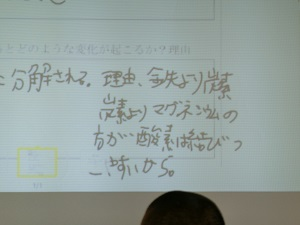 とどのような変化が起こるか?理由
に分解される。理由、鉄より炭素
炭素よりマグネシウムの
方が酸素は結びつ
きやすいから。